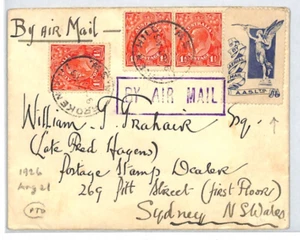 By Air Mail —
BY AIR MAIL
A.A.S. LTD 6d
William T. Graham Esq.
(Late Fred Hagen)
Postage Stamps Dealer
269 Pitt Street (First Floor)
Sydney N S Wales
1926
Aug 21
PTO